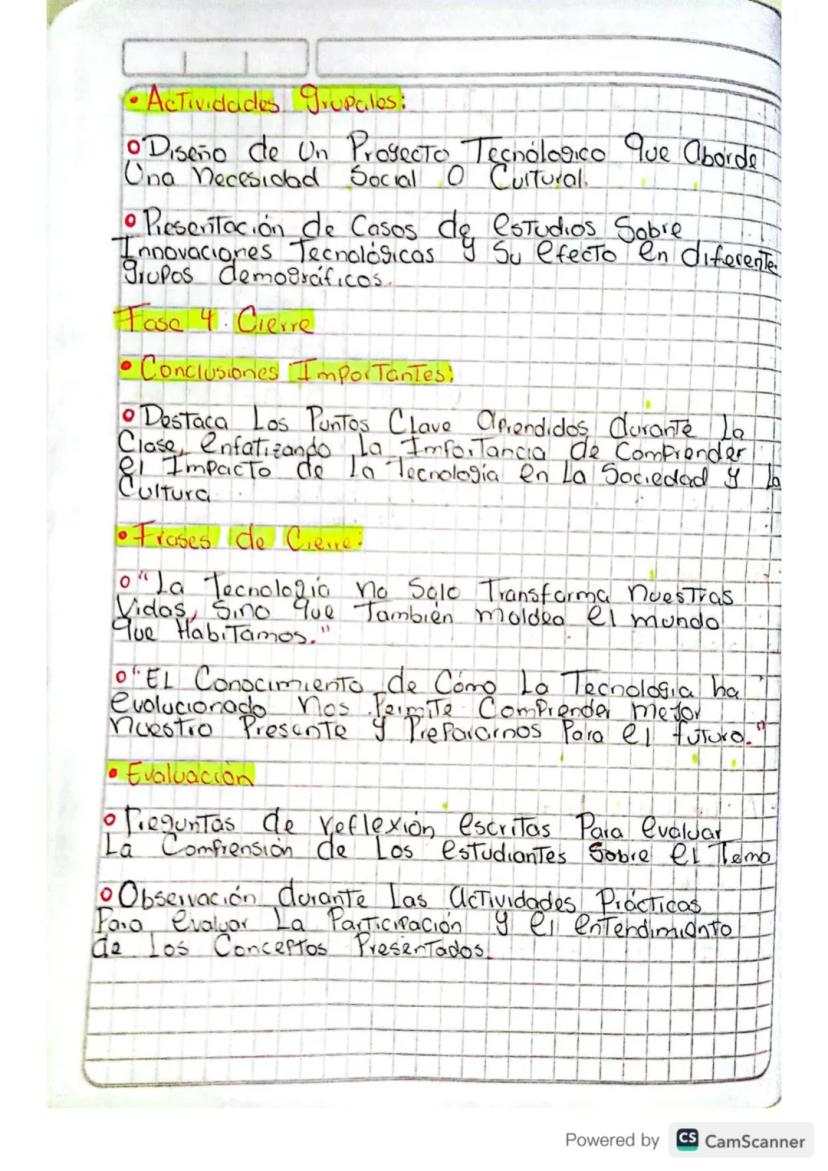 • Actividades grupales:
o Diseño de Un Proyecto Tecnólogico que aborde
Una necesidad Social O Cultural.
o Presentación de Casos de estudios Sobre
Innovaciones Tecnológicas y Su efecto en diferente
grupos demográficos.
Fase 4. Cierre
• Conclusiones Importantes:
o Destaca Los Puntos Clave aprendidos durante La
Clase, enfatizando La Importancia de Comprender
el Impacto de la Tecnología en La Sociedad y la
Cultura.
• Frases de Cierre:
o "La Tecnología no Solo Transforma nuestras
Vidas, Sino que también moldea el mundo
que Habitamos."
o "EL Conocimiento de Cómo La Tecnología ha
evolucionado nos Permite Comprender mejor
nuestro Presente y Prepararnos Para el futuro."
• Evaluación
o Preguntas de reflexión escritas Para evaluar
La Comprensión de Los estudiantes Sobre el Tema
o Observación durante Las actividades Prácticas
Para evaluar La Participación y el entendimiento
de Los Conceptos Presentados.
Powered by CS CamScanner